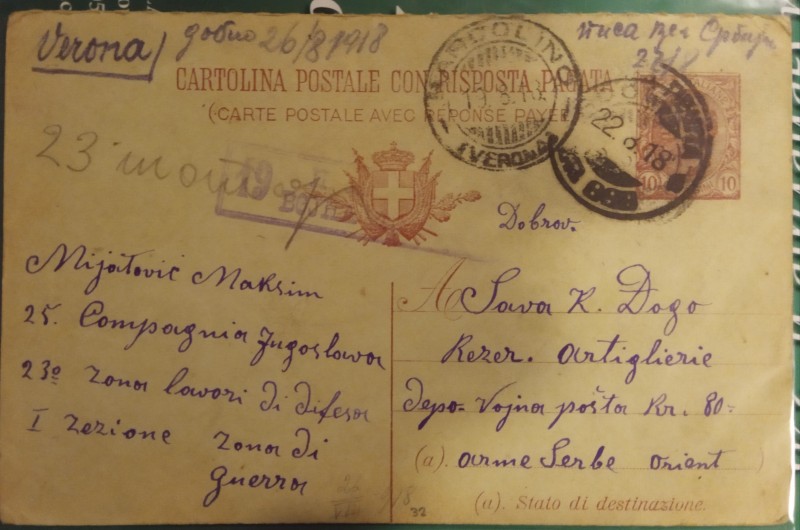 Verona
добио 26/8 1918
писа вез Србију
27/8
CARTOLINA POSTALE CON RISPOSTA PAGATA
(CARTE POSTALE AVEC RÉPONSE PAYÉE)
(VERONA)
22 8 18
10 10
23
19
Dobrov.
Mijatović Maksim
25. Compagnia Jugoslava
23º Zona lavori di difesa
I Zezione Zona di
guerra
A Sava K. Dogo
Rezer. Artiglierie
depo- Vojna pošta Kr. 80-
(a). arme Serbe orient
(a). Stato di destinazione.
32